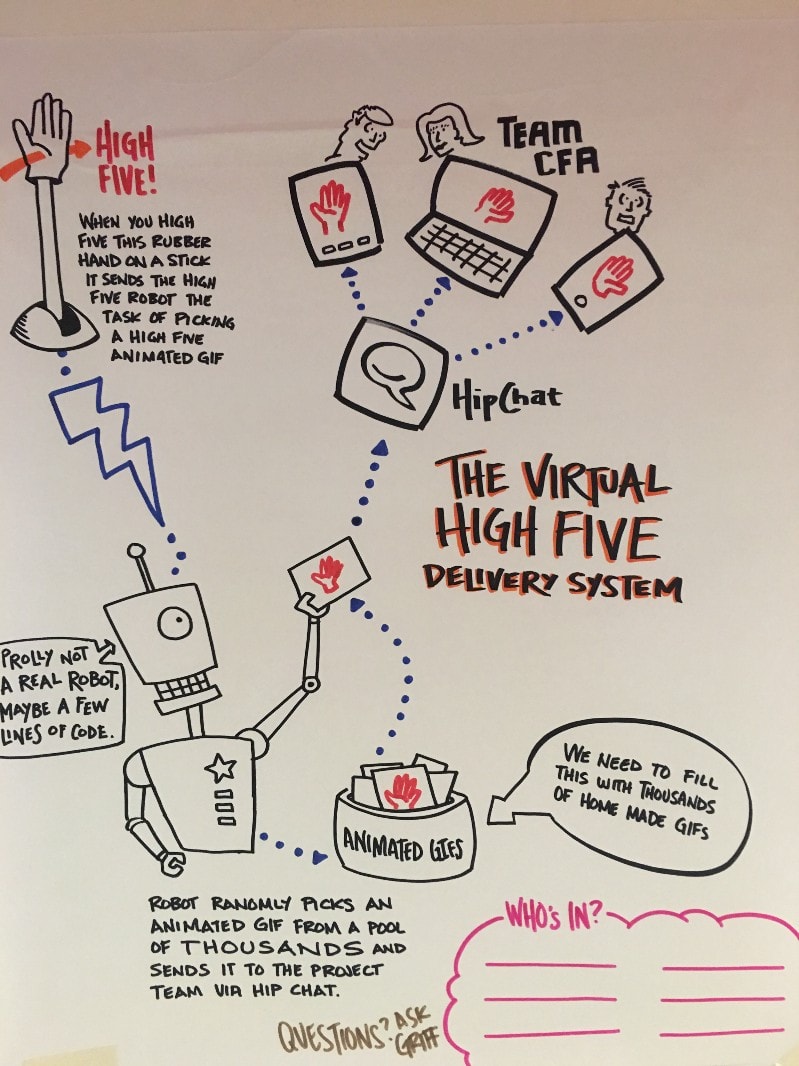 HIGH
FIVE!
WHEN YOU HIGH
FIVE THIS RUBBER
HAND ON A STICK
IT SENDS THE HIGH
FIVE ROBOT THE
TASK OF PICKING
A HIGH FIVE
ANIMATED GIF
TEAM
CFA
HipChat
THE VIRTUAL
HIGH FIVE
DELIVERY SYSTEM
PROLLY NOT
A REAL ROBOT,
MAYBE A FEW
LINES OF CODE.
ANIMATED GIFS
WE NEED TO FILL
THIS WITH THOUSANDS
OF HOME MADE GIFS
ROBOT RANOMLY PICKS AN
ANIMATED GIF FROM A POOL
OF THOUSANDS AND
SENDS IT TO THE PROJECT
TEAM VIA HIP CHAT.
WHO'S IN?
QUESTIONS? ASK
GRIFF